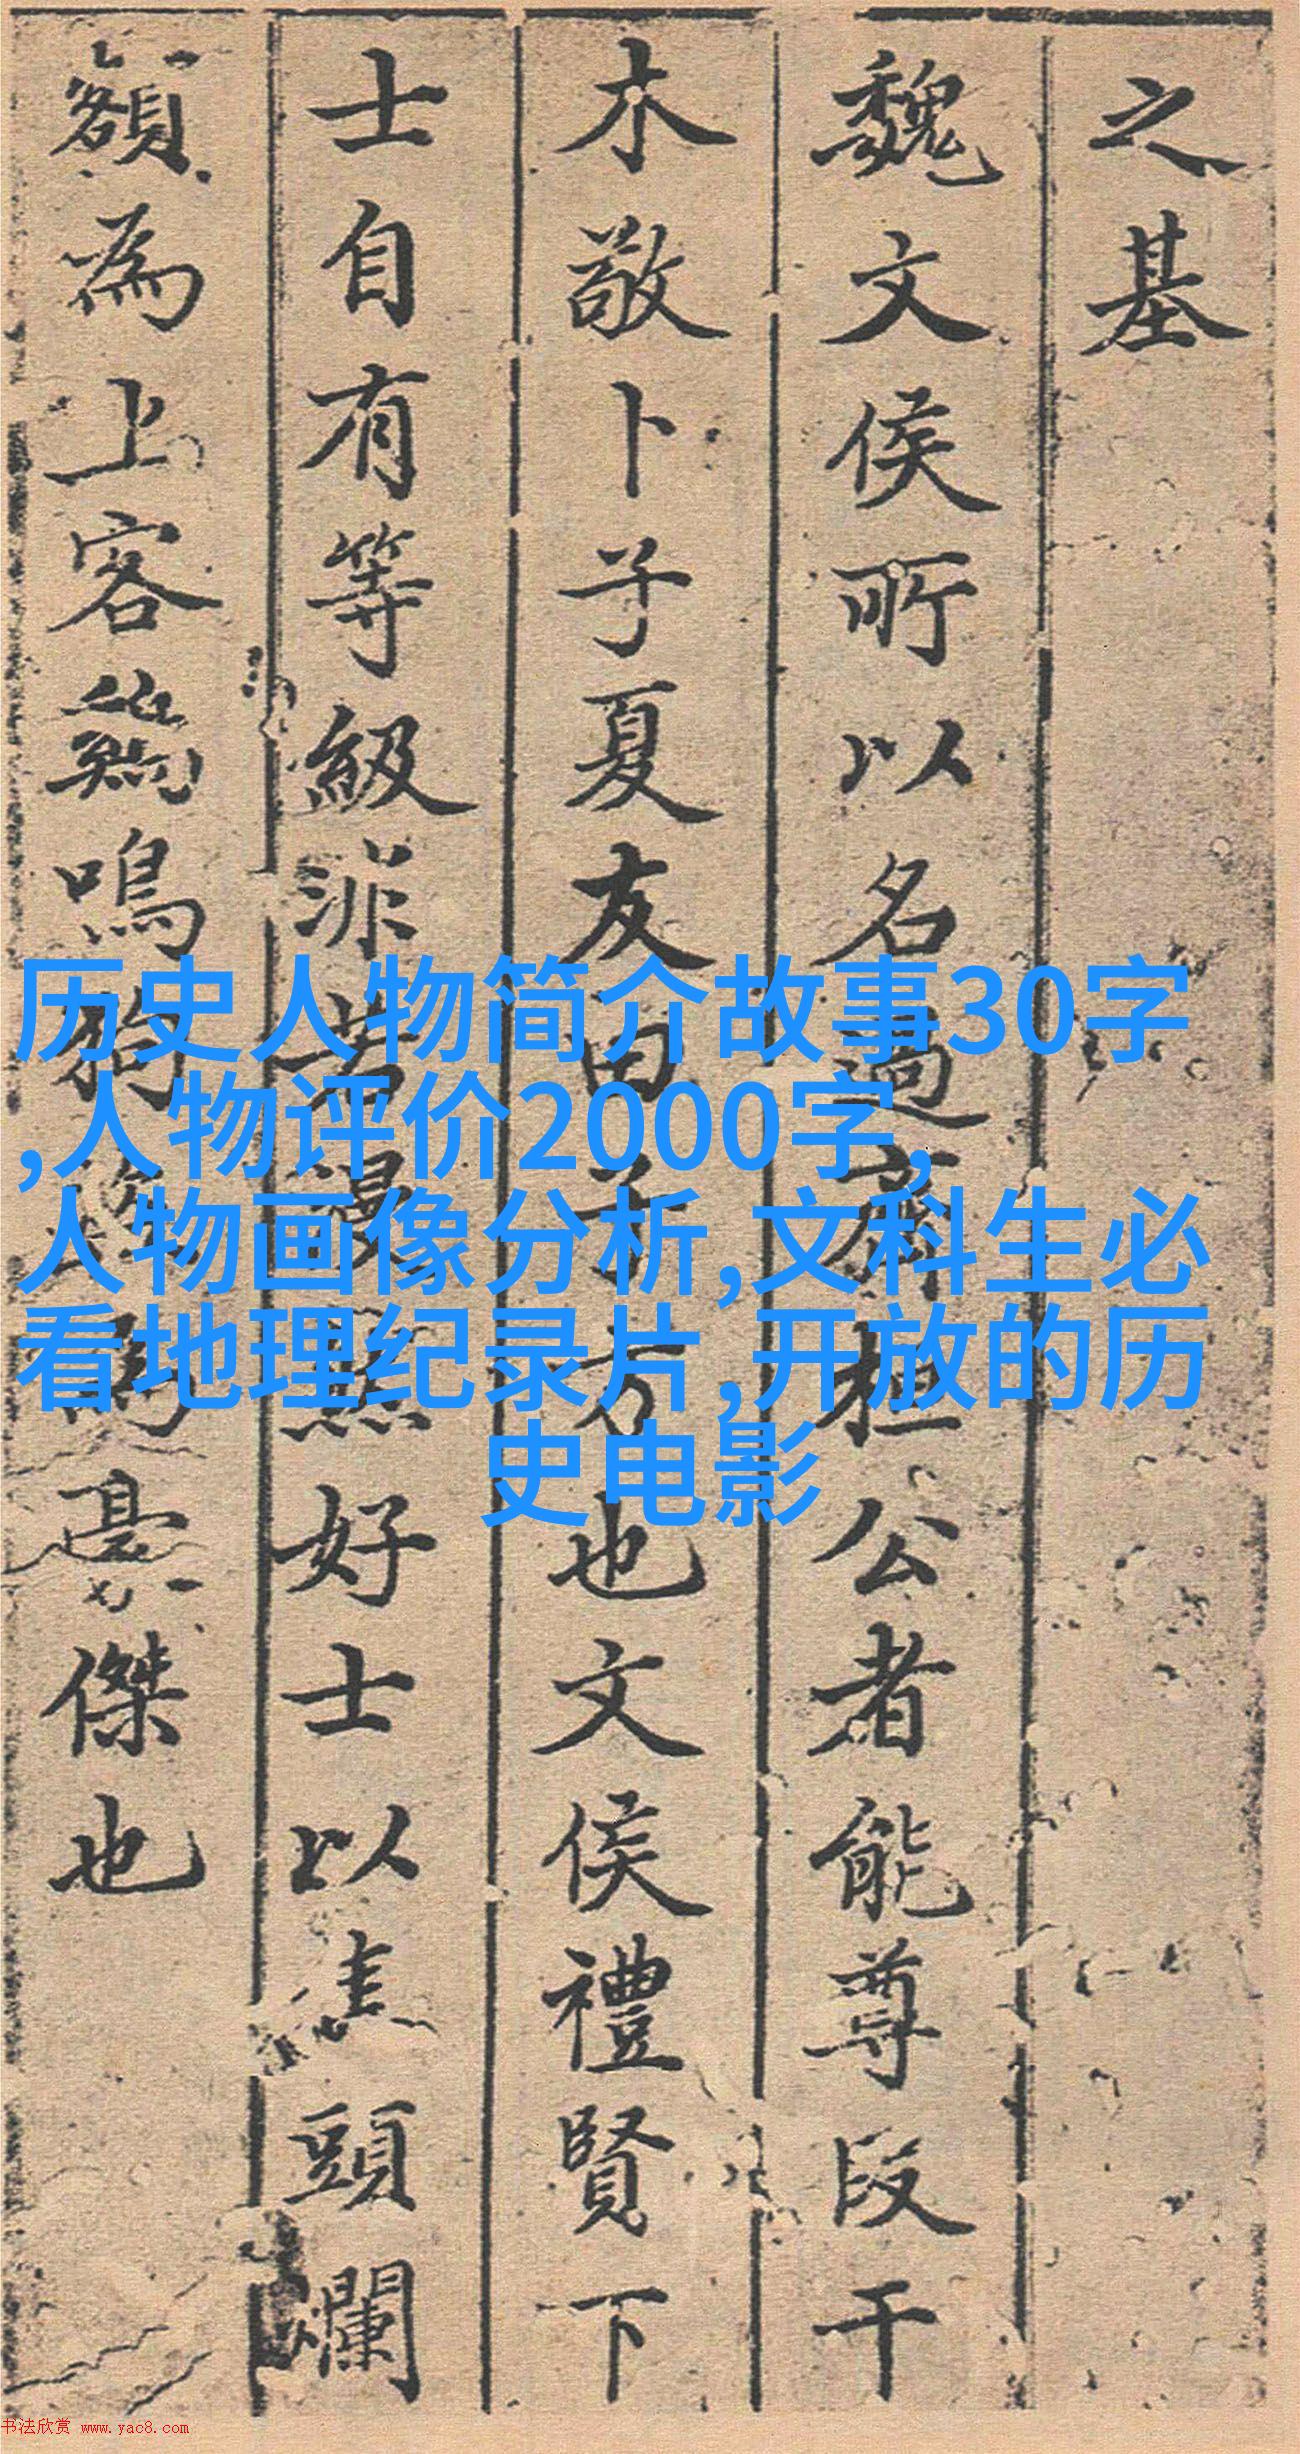 之基
魏文侯所以名過齊桓公者能尊段干
木敬卜子夏友田子方也文侯禮賢下
士自有等級非若漫然好士以焦頭爛
額為上客鷄鳴狗盜為豪傑也
历史人物简介故事30字
,人物评价2000字,
人物画像分析,文科生必
看地理纪录片,开放的历
史电影
书法欣赏 www.yac8.com